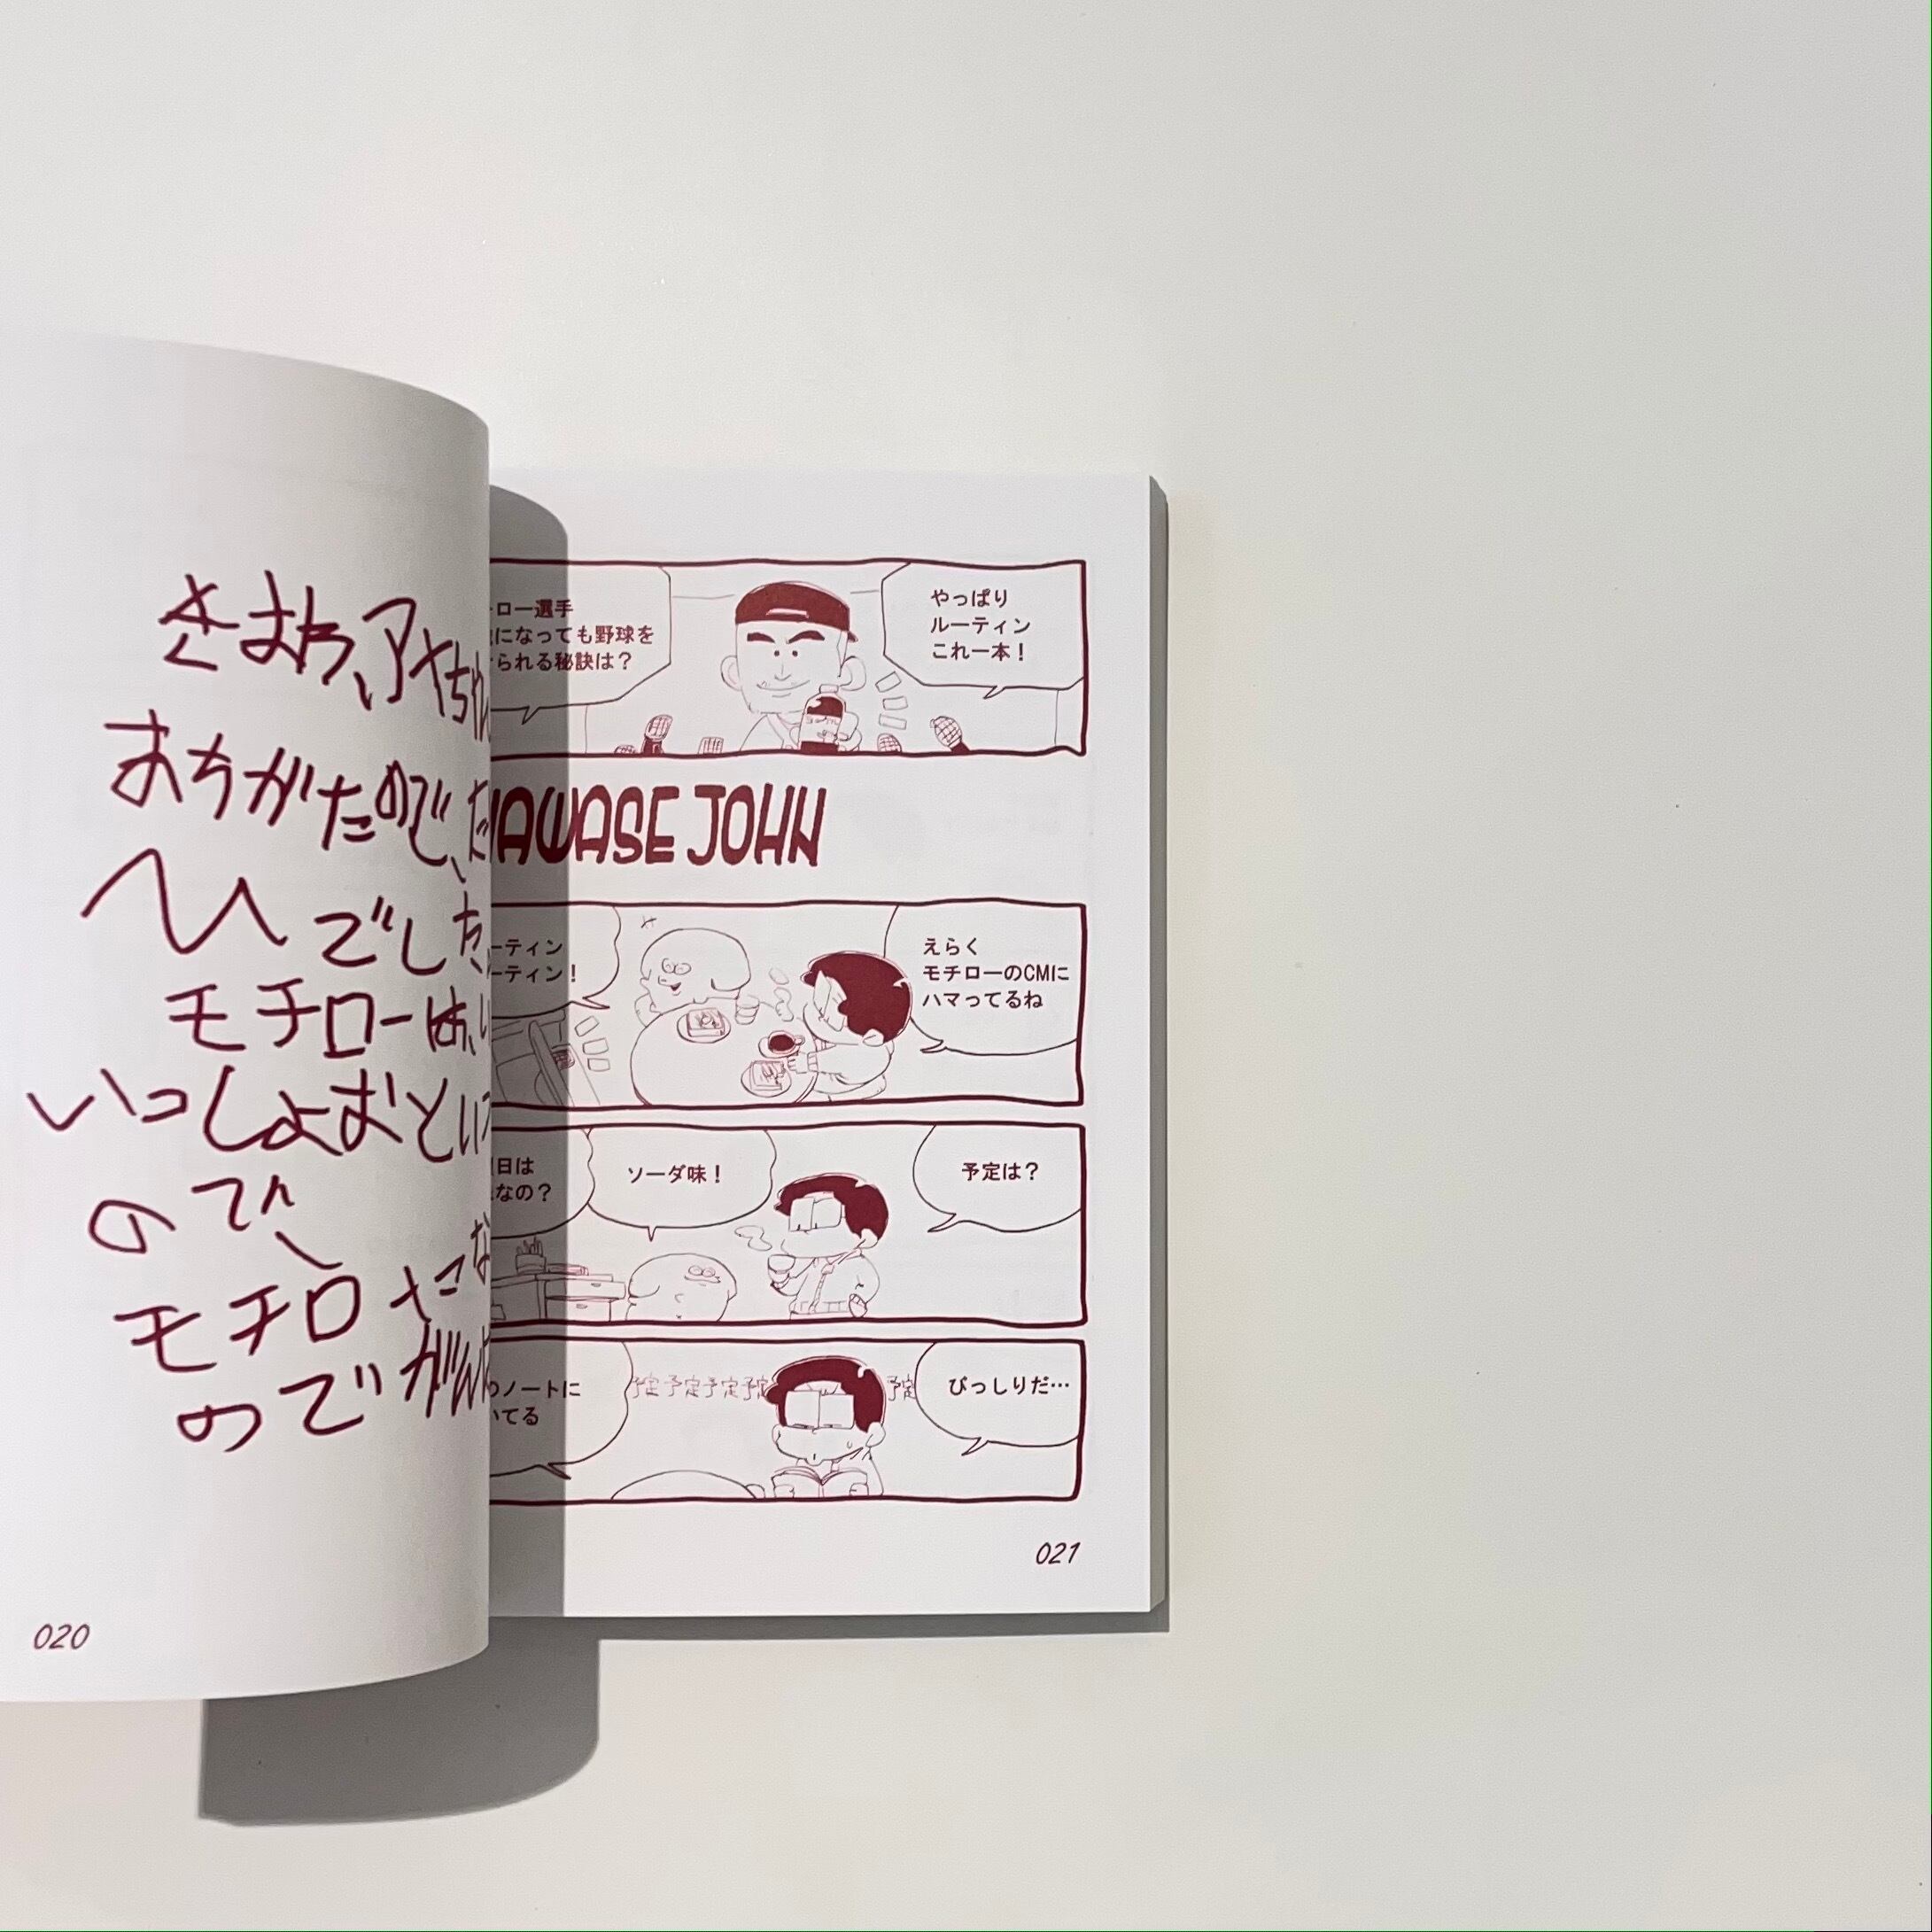 おちがたので、
でした
モチローは、
いっしょおとい
ので、
モチロ
ので
020
やっぱり
ルーティン
これ一本！
ロー選手
になっても野球を
られる秘訣は？
AWASE JOHN
えらく
モチローのCMに
ハマってるね
ーティン
ーティン！
予定は？
ソーダ味！
日は
なの？
びっしりだ…
予定予定予定予定
予定
ノートに
てる
021